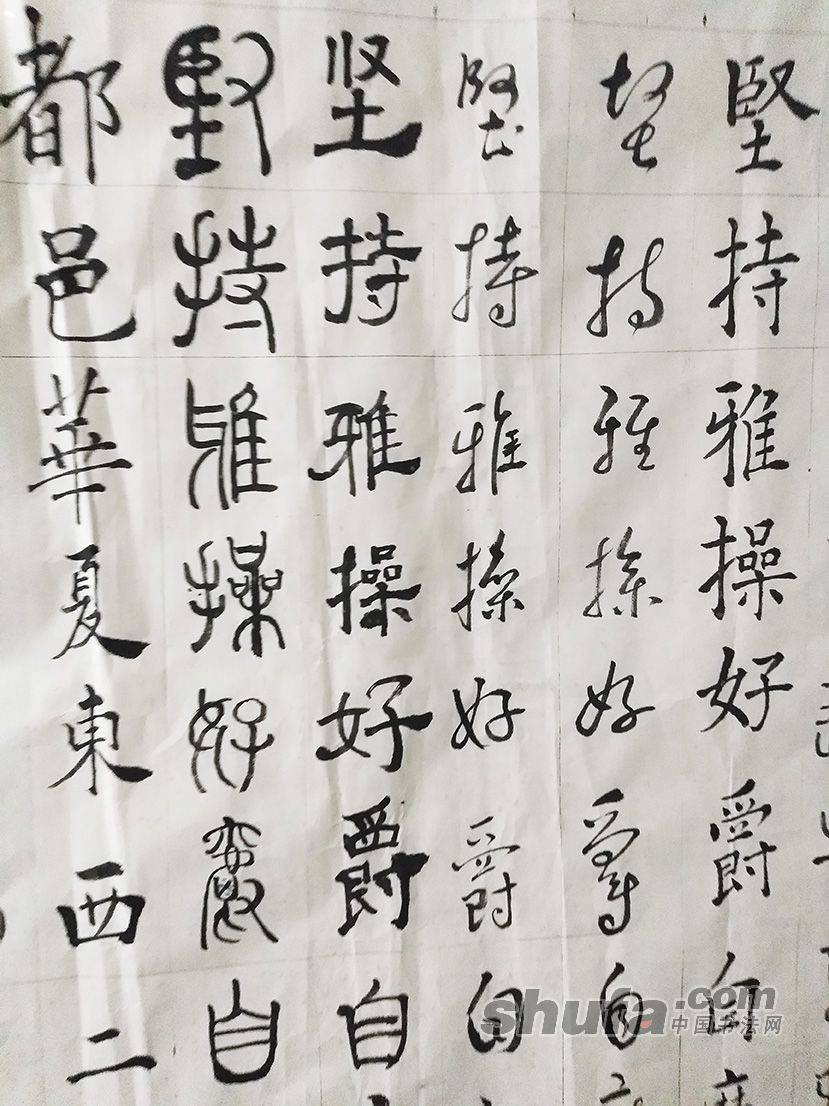 堅持雅操好爵自
堅持雅操好爵自
堅持雅操好爵自
坚持雅操好爵自
堅持雅操好爵自
都邑華夏東西二
shufa.com
中国书法网